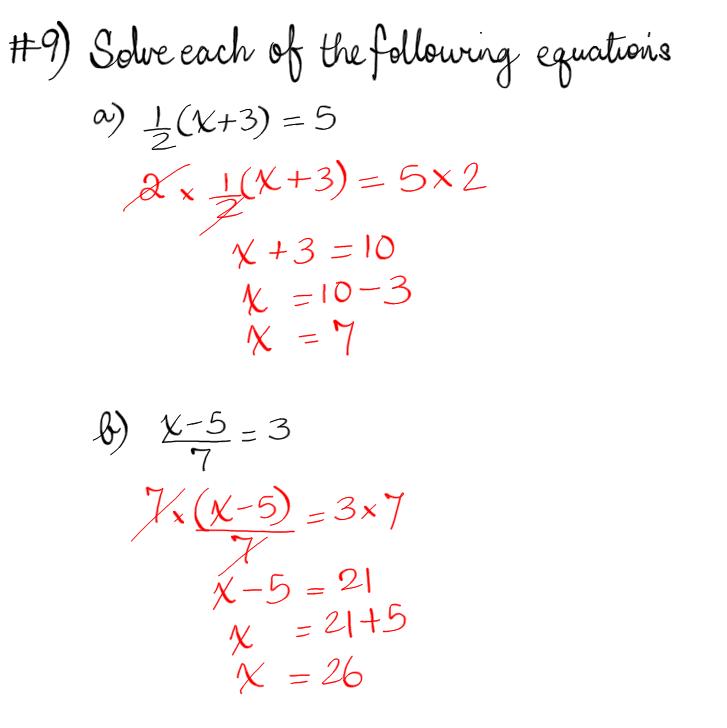 #9) Solve each of the following equations
a) 1/2 (x+3) = 5
2 × 1/2 (x+3) = 5×2
x + 3 = 10
x = 10-3
x = 7
b) x-5/7 = 3
7×(x-5)/7 = 3×7
x-5 = 21
x = 21+5
x = 26